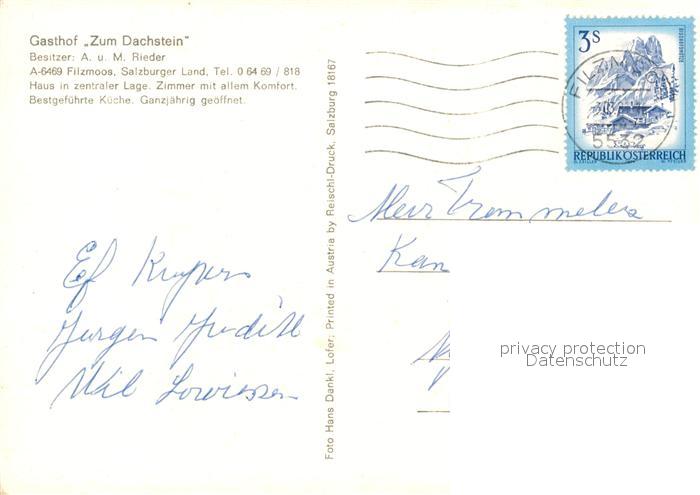 Gasthof „Zum Dachstein"
Besitzer: A. u. M. Rieder
A-6469 Filzmoos, Salzburger Land, Tel. 0 64 69 / 818
Haus in zentraler Lage. Zimmer mit allem Komfort.
Bestgeführte Küche. Ganzjährig geöffnet.
Foto Hans Dankl, Lofer; Printed in Austria by Reischl-Druck, Salzburg 18167
3 S
FILZMOOS
5532
REPUBLIK ÖSTERREICH
Trommelen
Kan
Ef Kuypers
Jurgen Judith
Wil
privacy protection
Datenschutz